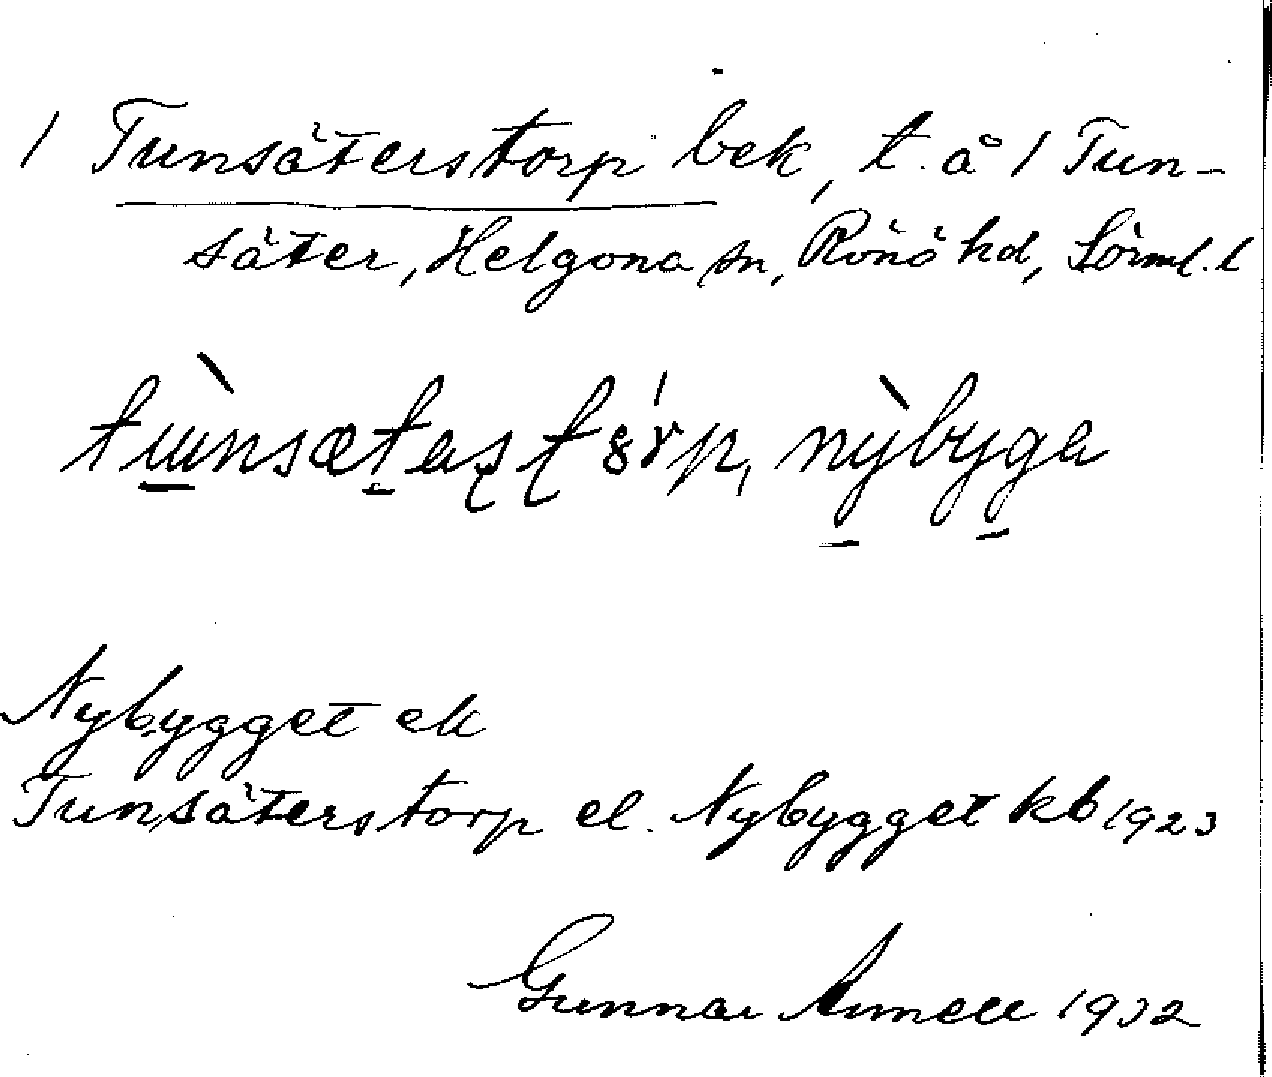 1 Tunsäterstorp bek, t. å 1 Tun-
säter, Helgona sn, Rönö hd, Sörml. l
nỳbyga
Nybygget ek
Tunsäterstorp el. Nybygget kb 1923
Gunnar 1932